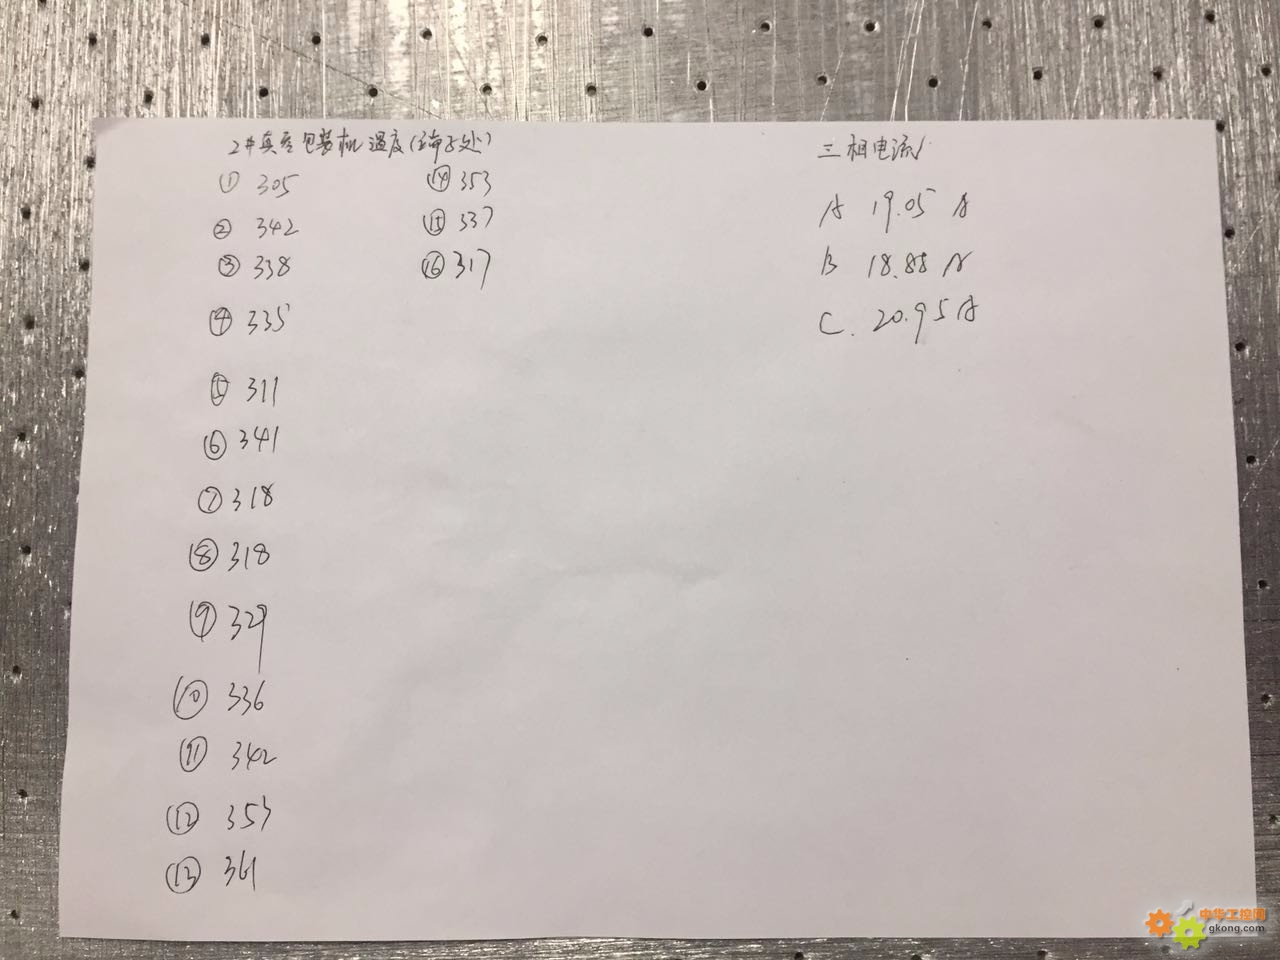 2#真空包装机温度(端子处)
① 305
② 342
③ 338
④ 335
⑤ 311
⑥ 341
⑦ 318
⑧ 318
⑨ 329
⑩ 336
⑪ 342
⑫ 353
⑬ 361
⑭ 353
⑮ 337
⑯ 317
三相电流
A 19.05 A
B 18.88 A
C. 20.95 A
中华工控网
gkong.com